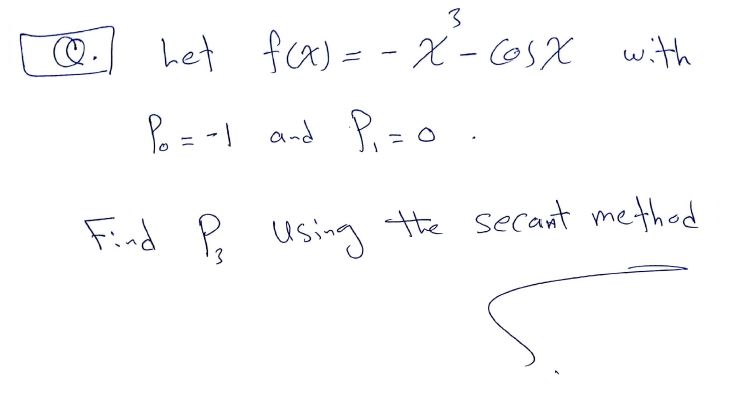 Q. Let f(x) = - x³ - cos x with
P₀ = -1 and P₁ = 0 .
Find P₃ using the secant method